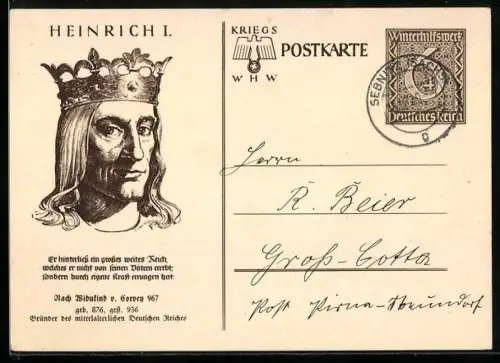 HEINRICH I.
Er hinterließ ein großes weites Reich,
welches er nicht von seinen Vätern ererbt,
sondern durch eigene Kraft errungen hat.
Nach Widukind v. Corvey 967
geb. 876, gest. 936
Gründer des mittelalterlichen Deutschen Reiches
KRIEGS
WHW
POSTKARTE
Winterhilfswerk
6
Deutsches Reich
SEBNITZ (SACHS)
g
Herrn
R. Beier
Groß-Cotta
Post Pirna-Neundorf